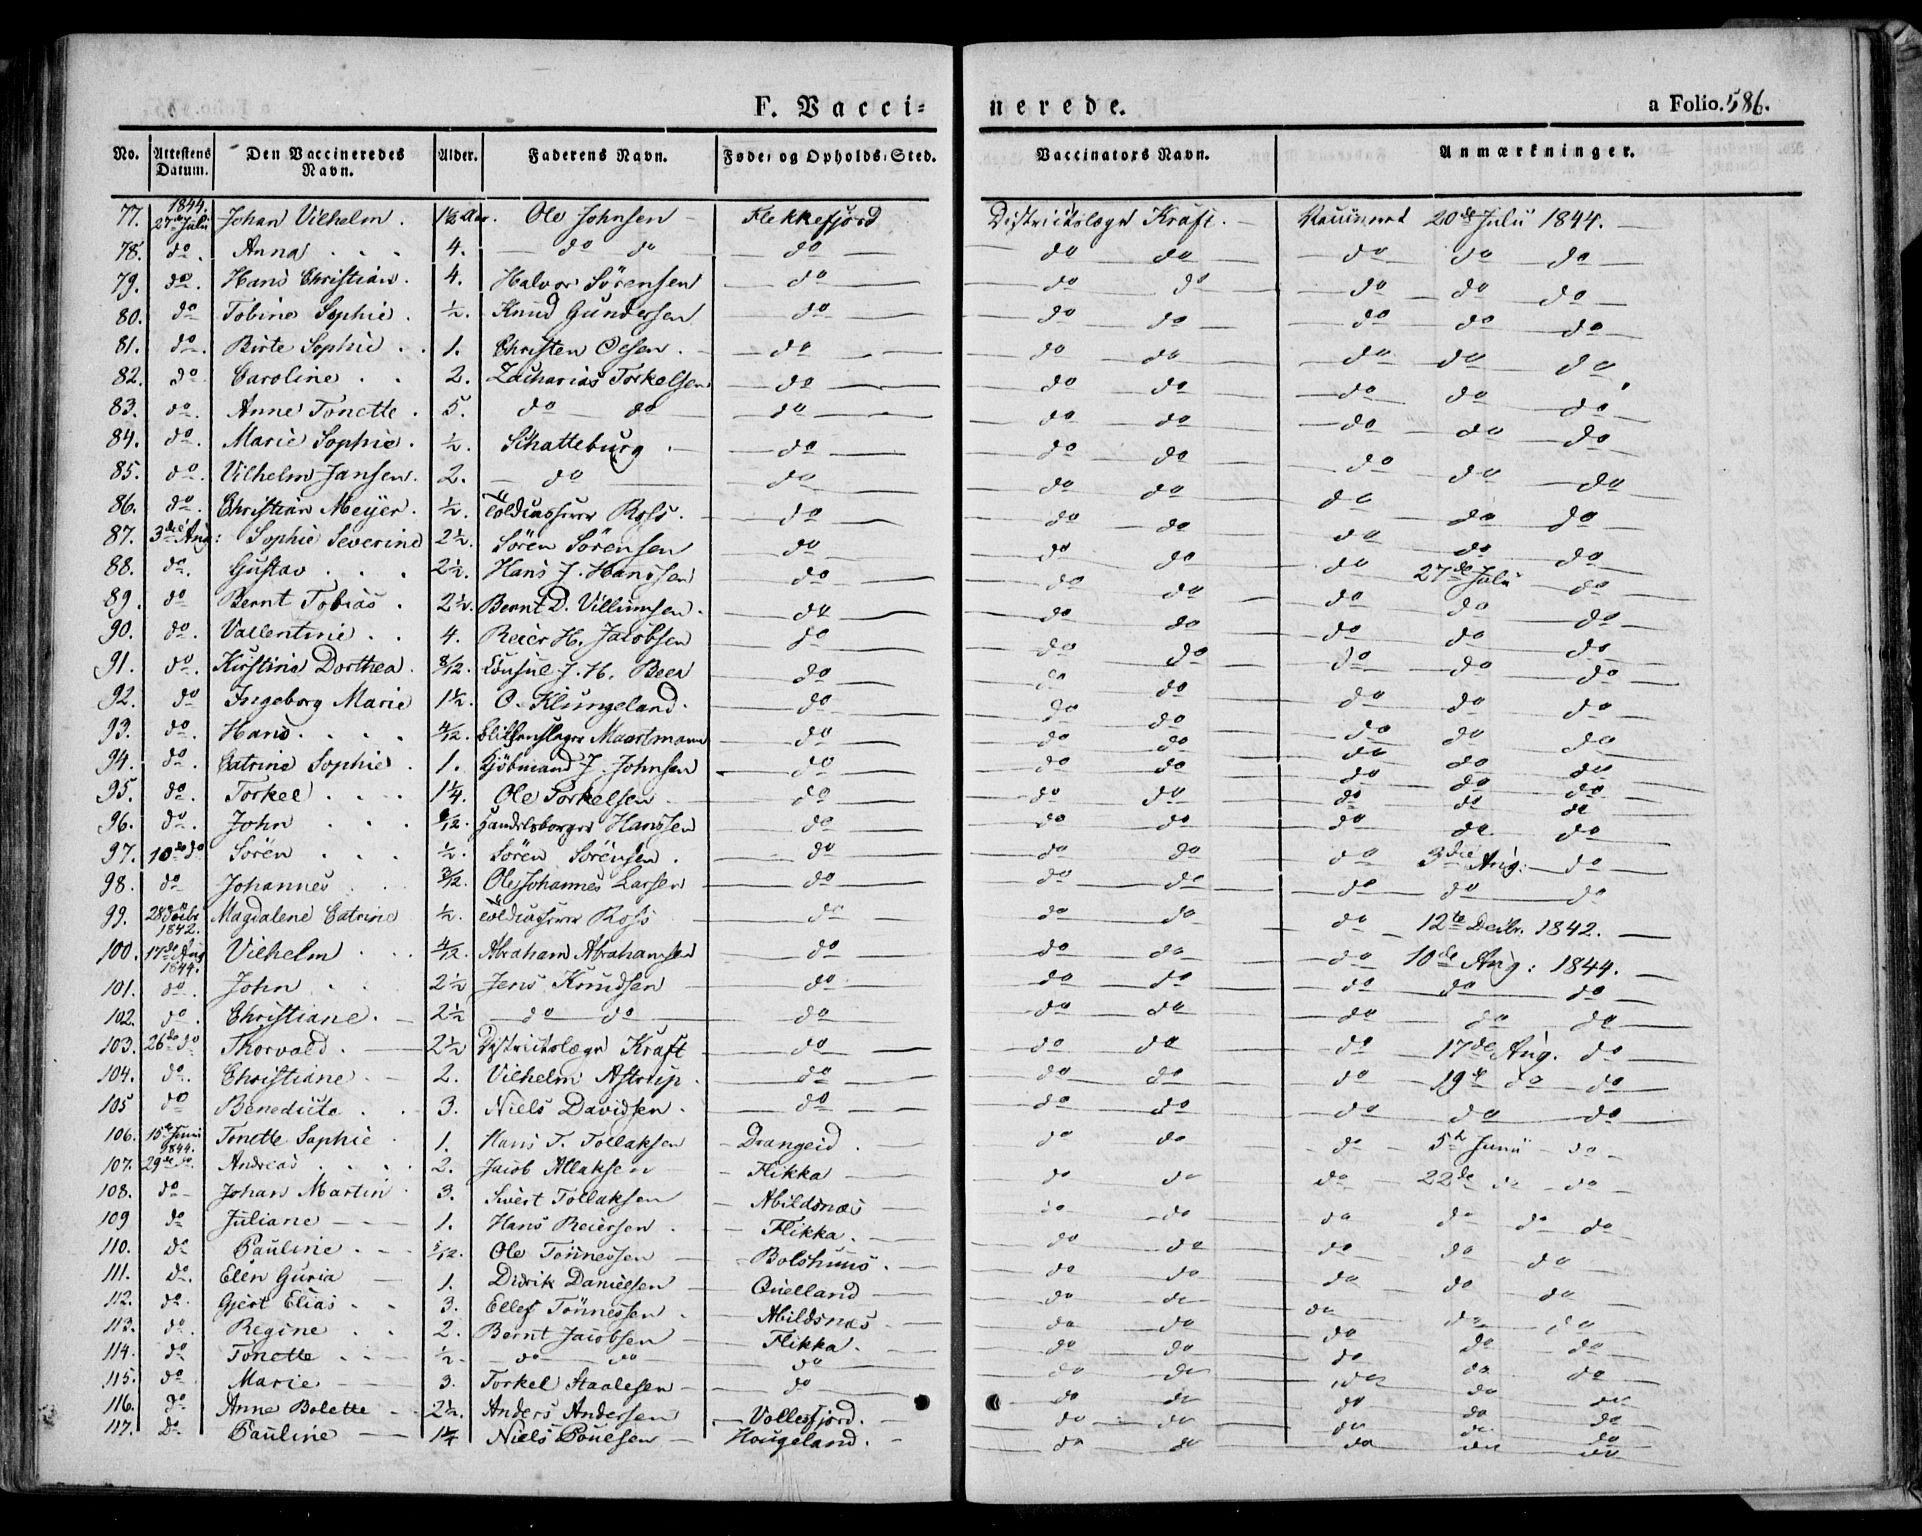 F. Vaccinerede. a Folio. 586.
No. Attestens Datum. Den Vaccineredes Navn. Alder. Faderens Navn. Føde- og Opholds-Sted. Vaccinators Navn. Anmærkninger.
77. 1844. 27de Julii Johan Vilhelm. Ole Johnsen Flekkefjord Districtslæge Kraft. Vaccineret 20de Julii 1844.
78. do. Anna 4. do do do do do do do do
79. do. Hans Christian. 4. Halvor Sörensen do do do do do do
80. do Tobine Sophie. ½. Knud Gundersen do do do do do do
81. do. Birte Sophie 1. Christen Olsen. do do do do do do
82. do Caroline 2. Zacharias Torkelsen do do do do do do
83. do. Anne Tonette. 5. do do do do do do do do
84. do. Marie Sophie. ½. Schatteburg do do do do do do
85. do. Vilhelm Jansen. 2. do do do do do do do
86. do. Christian Meyer. ½. Toldcasserer Ross. do do do do do do
87. 3die Aug: Sophie Severine 2½. Sören Sörensen do do do do do do
88. do. Gustav 2½. Hans J. Hanssen do do do do 27de Julii do
89. do Bernt Tobias. 2½. Bernt D. Villumsen. do do do do do do
90. do. Vallentine 4. Reier H. Jacobsen do do do do do do
91. do. Kirstine Dorthea. 8/12. Consul J. H. Beer do do do do do do
92. do Ingeborg Marie 1½. O. Klungeland. do do do do do do
93. do. Hans 4/12. Maartmann do do do do do do
94. do. Catrine Sophie. 1. Kjöbmand J. Johnsen do do do do do do
95. do. Torkel 1¼. Ole Torkelsen do do do do do do
96. do. John Handelsborger Hanssen do do do do do do
97. 10de do Sören ½. Sören Sörensen. do do do do 3die Aug: do
98. do Johannes 3/12. Ole Johannes Larsen do do do do do do
99. 28de Decbr 1842. Magdalene Catrine ½. Toldcasserer Ross do do do do 12te Decbr. 1842.
100. 17de Aug 1844. Vilhelm 4/12. Abraham Abrahamsen do do do do 10de Aug: 1844.
101. do. John 2½ Jens Knudsen do do do do do do
102. do. Christiane. 2½ do do do do do do do do
103. 26de do Thorvald. 2½ Districtslæge Kraft do do do do 17de Aug. do
104. do. Christiane 2. Vilhelm Astrup. do do do do 19de do do
105 do Benedicte 3. Niels Davidsen. do do do do do do
106. 15de Junii 1844. Tonette Sophie 1. Hans T. Tollaksen Drangeid. do do do 5te Junii do
107. 29de do. Andreas 2. Jacob Allaksen Flikka do do do 22de do do
108. do Johan Martin 3. Sivert Tollaksen Abildsnæs do do do do do do
109 do Juliane 1. Hans Reiersen. Flikka. do do do do do
110. do Pauline 5/12. Ole Tönnessen Bolshuus. do do do do do
111. do. Elen Guria 1. Didrik Danielsen Quelland do do do do do
112. do. Gjert Elias 3. Ellef Tönnessen. Abildsnæs do do do do do
113. do. Regine 2. Bernt Jacobsen Flikka. do do do do do
114. do Tonette ½. do do do do do do do do
115. do. Marie 3. Torkel Staalesen do do do do do do
116. do Anne Bolette 2½. Anders Andersen Vollesfjord. do do do do do
117. do Pauline 1¼ Niels Poulsen Hougeland. do do do do do